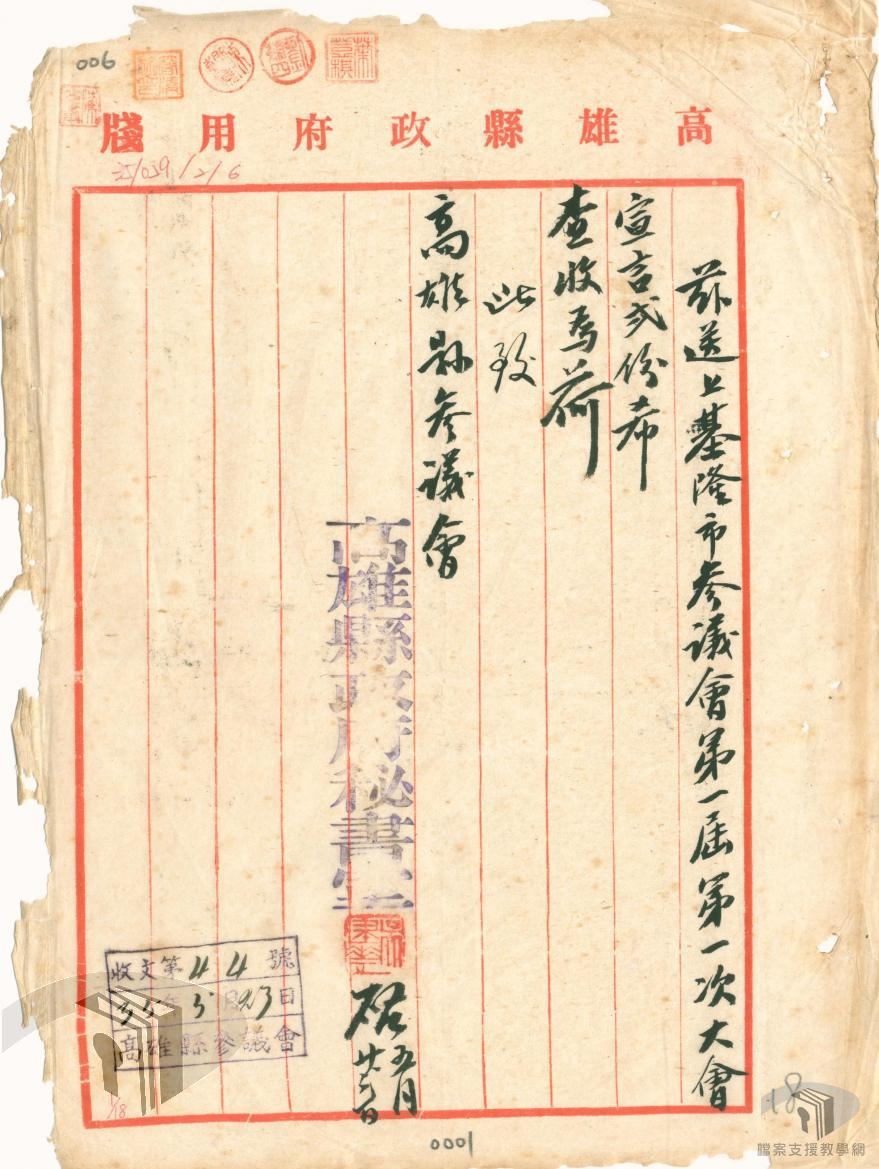 006
高雄縣政府用牋
25/029/2/6
茲送上基隆市參議會第一屆第一次大會
宣言弍份希
查收為荷
此致
高雄縣參議會
高雄縣政府秘書室
啓 五月廿三日
收文第44號
35年5月23日
高雄縣參議會
1/18
18
0001
檔案支援教學網